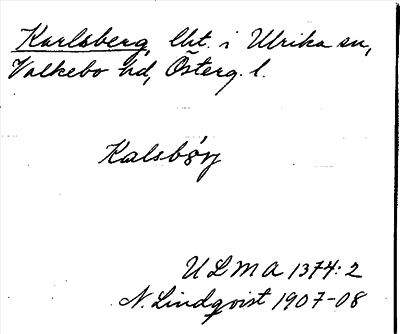 Karlsberg, lht. i Ulrika sn,
Valkebo hd, Österg. l.
Kalsbǿrj
ULMA 1374:2
N. Lindqvist 1907-08